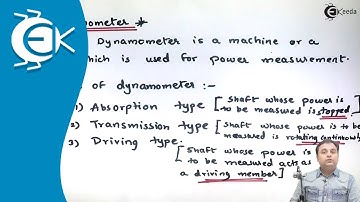 Ekeeda
ometer *
Dynamometer is a machine or a
hich is used for power measurement.
of dynamometer :-
1) Absorption type [shaft whose power is
to be measured is stopped]
2) Transmission type [shaft whose power is to be
measured is rotating
3) Driving type. [shaft whose power is
to be measured acts as
a driving member]